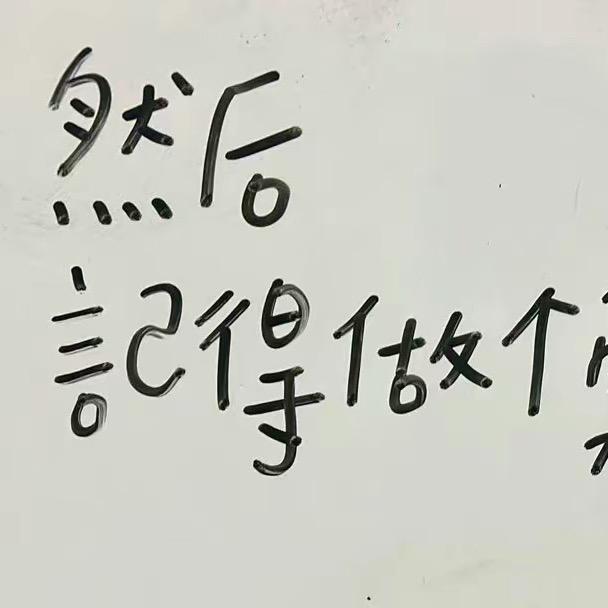 然后
記得做个